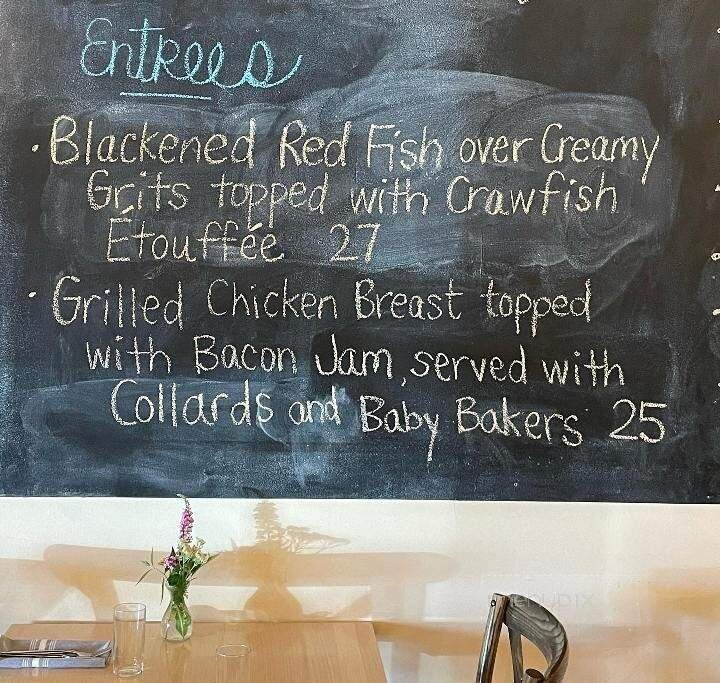 Entrees
• Blackened Red Fish over Creamy
Grits topped with Crawfish
Étouffée 27
• Grilled Chicken Breast topped
with Bacon Jam, served with
Collards and Baby Bakers 25